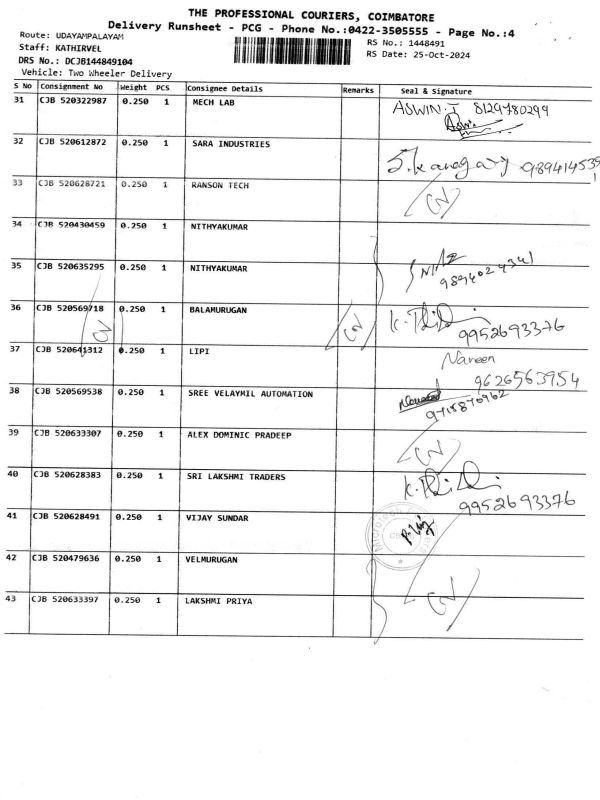 THE PROFESSIONAL COURIERS, COIMBATORE
Delivery Runsheet - PCG - Phone No.:0422-3505555 - Page No.:4
Route: UDAYAMPALAYAM
RS No.: 1448491
Staff: KATHIRVEL
RS Date: 25-Oct-2024
DRS No.: DCJB144849104
Vehicle: Two Wheeler Delivery
S No Consignment No Weight PCS Consignee Details Remarks Seal & Signature
31 CJB 520322987 0.250 1 MECH LAB ASWIN.J 8129780299
32 CJB 520612872 0.250 1 SARA INDUSTRIES
33 CJB 520628721 0.250 1 RANSON TECH
34 CJB 520430459 0.250 1 NITHYAKUMAR
35 CJB 520635295 0.250 1 NITHYAKUMAR 9894024341
36 CJB 520569718 0.250 1 BALAMURUGAN 9952693376
37 CJB 520641312 0.250 1 LIPI Nareen 9626563954
38 CJB 520569538 0.250 1 SREE VELAYMIL AUTOMATION
39 CJB 520633307 0.250 1 ALEX DOMINIC PRADEEP
40 CJB 520628383 0.250 1 SRI LAKSHMI TRADERS 9952693376
41 CJB 520628491 0.250 1 VIJAY SUNDAR
42 CJB 520479636 0.250 1 VELMURUGAN
43 CJB 520633397 0.250 1 LAKSHMI PRIYA